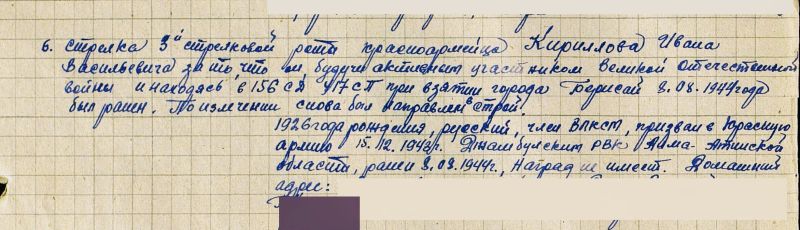 6. стрелка 3й стрелковой роты красноармейца Кириллова Ивана
Васильевича за то, что он, будучи активным участником Великой Отечественной
войны и находясь в 156 СД 417 СП при взятии города Борисов 3.08.1944 года
был ранен. По излечении снова был направлен в строй.
1926 года рождения, русский, член ВЛКСМ, призван в Красную
армию 15.12.1943г. Джамбулским РВК Алма-Атинской
области, ранен 3.03.1944г., Наград не имеет. Домашний
адрес: